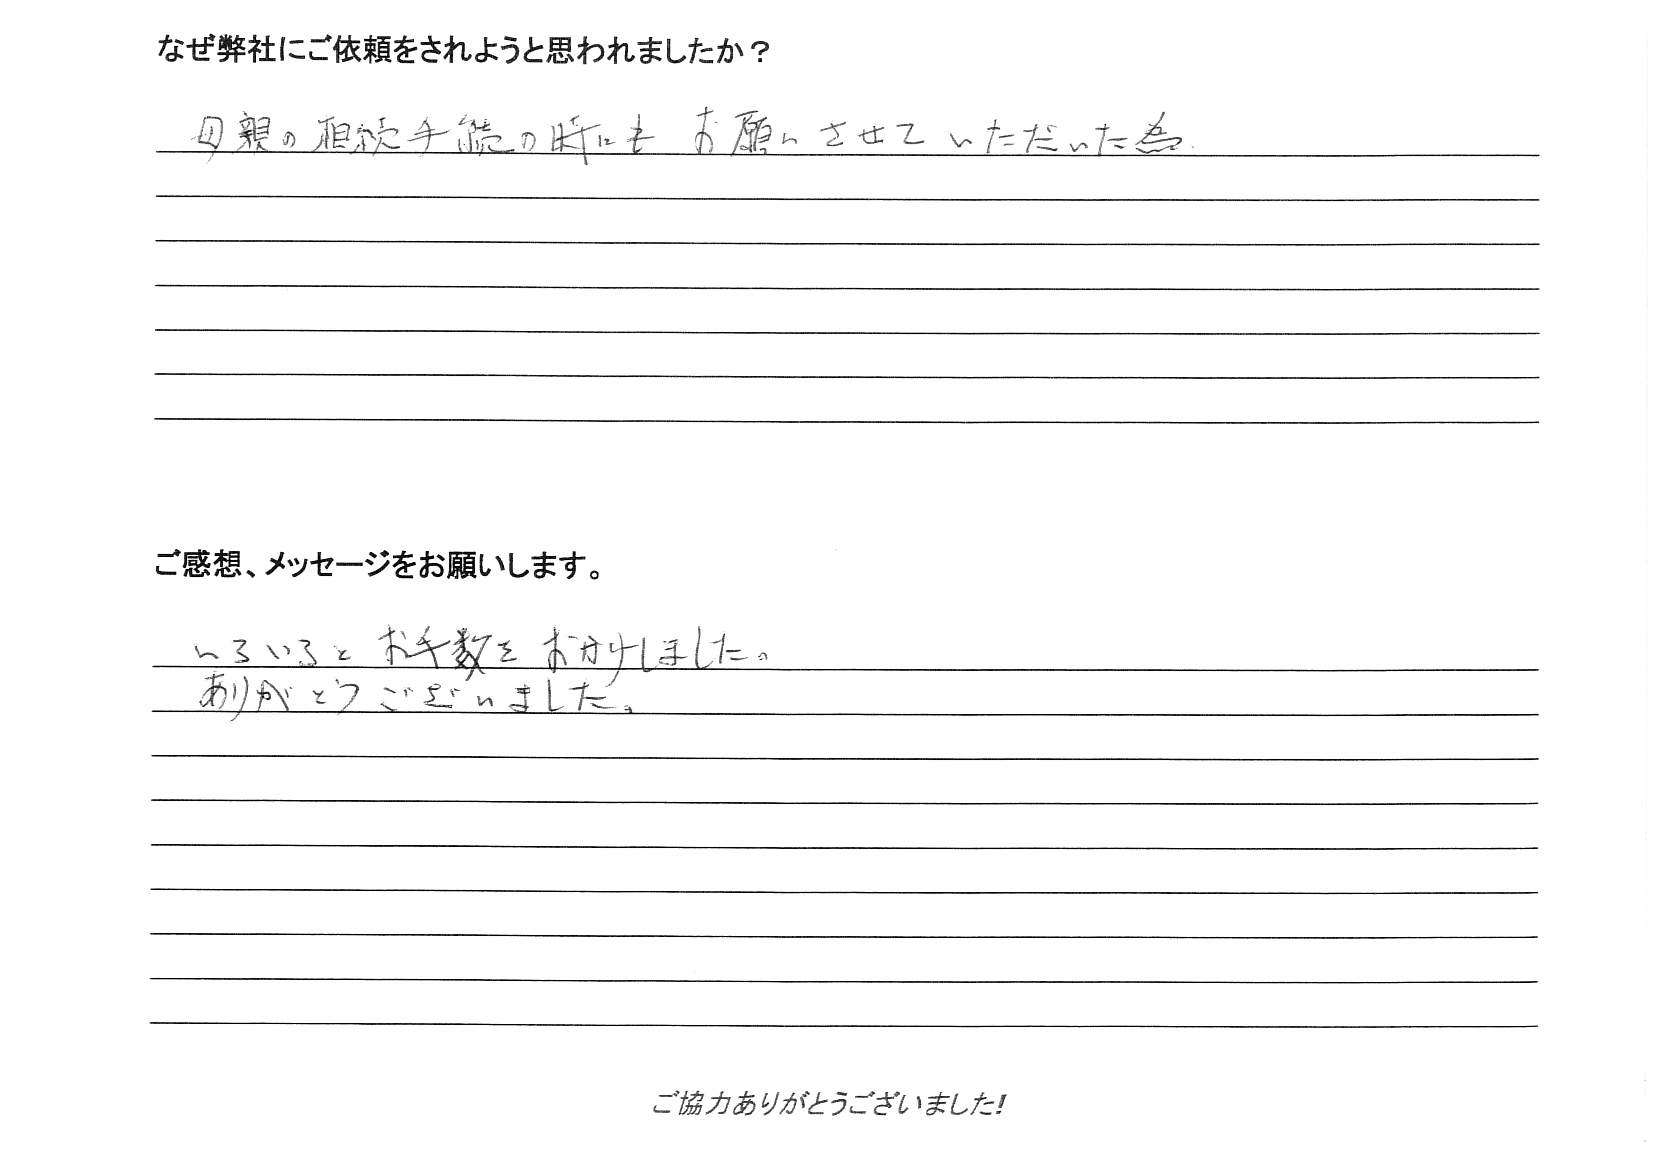 なぜ弊社にご依頼をされようと思われましたか？
母親の相続手続の時にもお願いさせていただいた為.
ご感想、メッセージをお願いします。
いろいろとお手数をおかけしました。
ありがとうございました。
ご協力ありがとうございました!